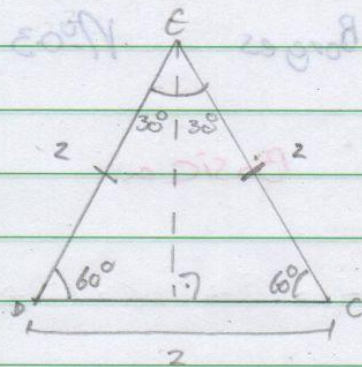 E
30° 30°
2 2
60° 60°
D C
2